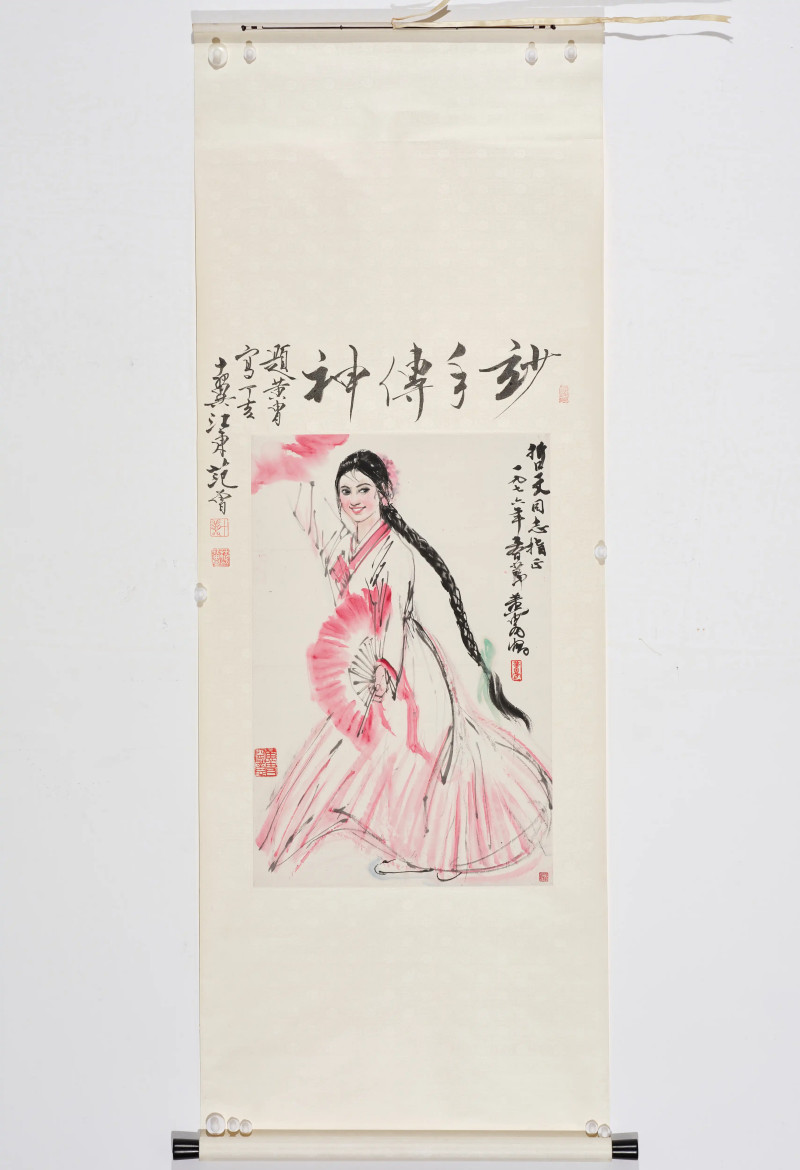 玅手傳神
題黄胄
寫丁亥
十翼江東范曾
哲同志指正
一九七六年春節黄胄